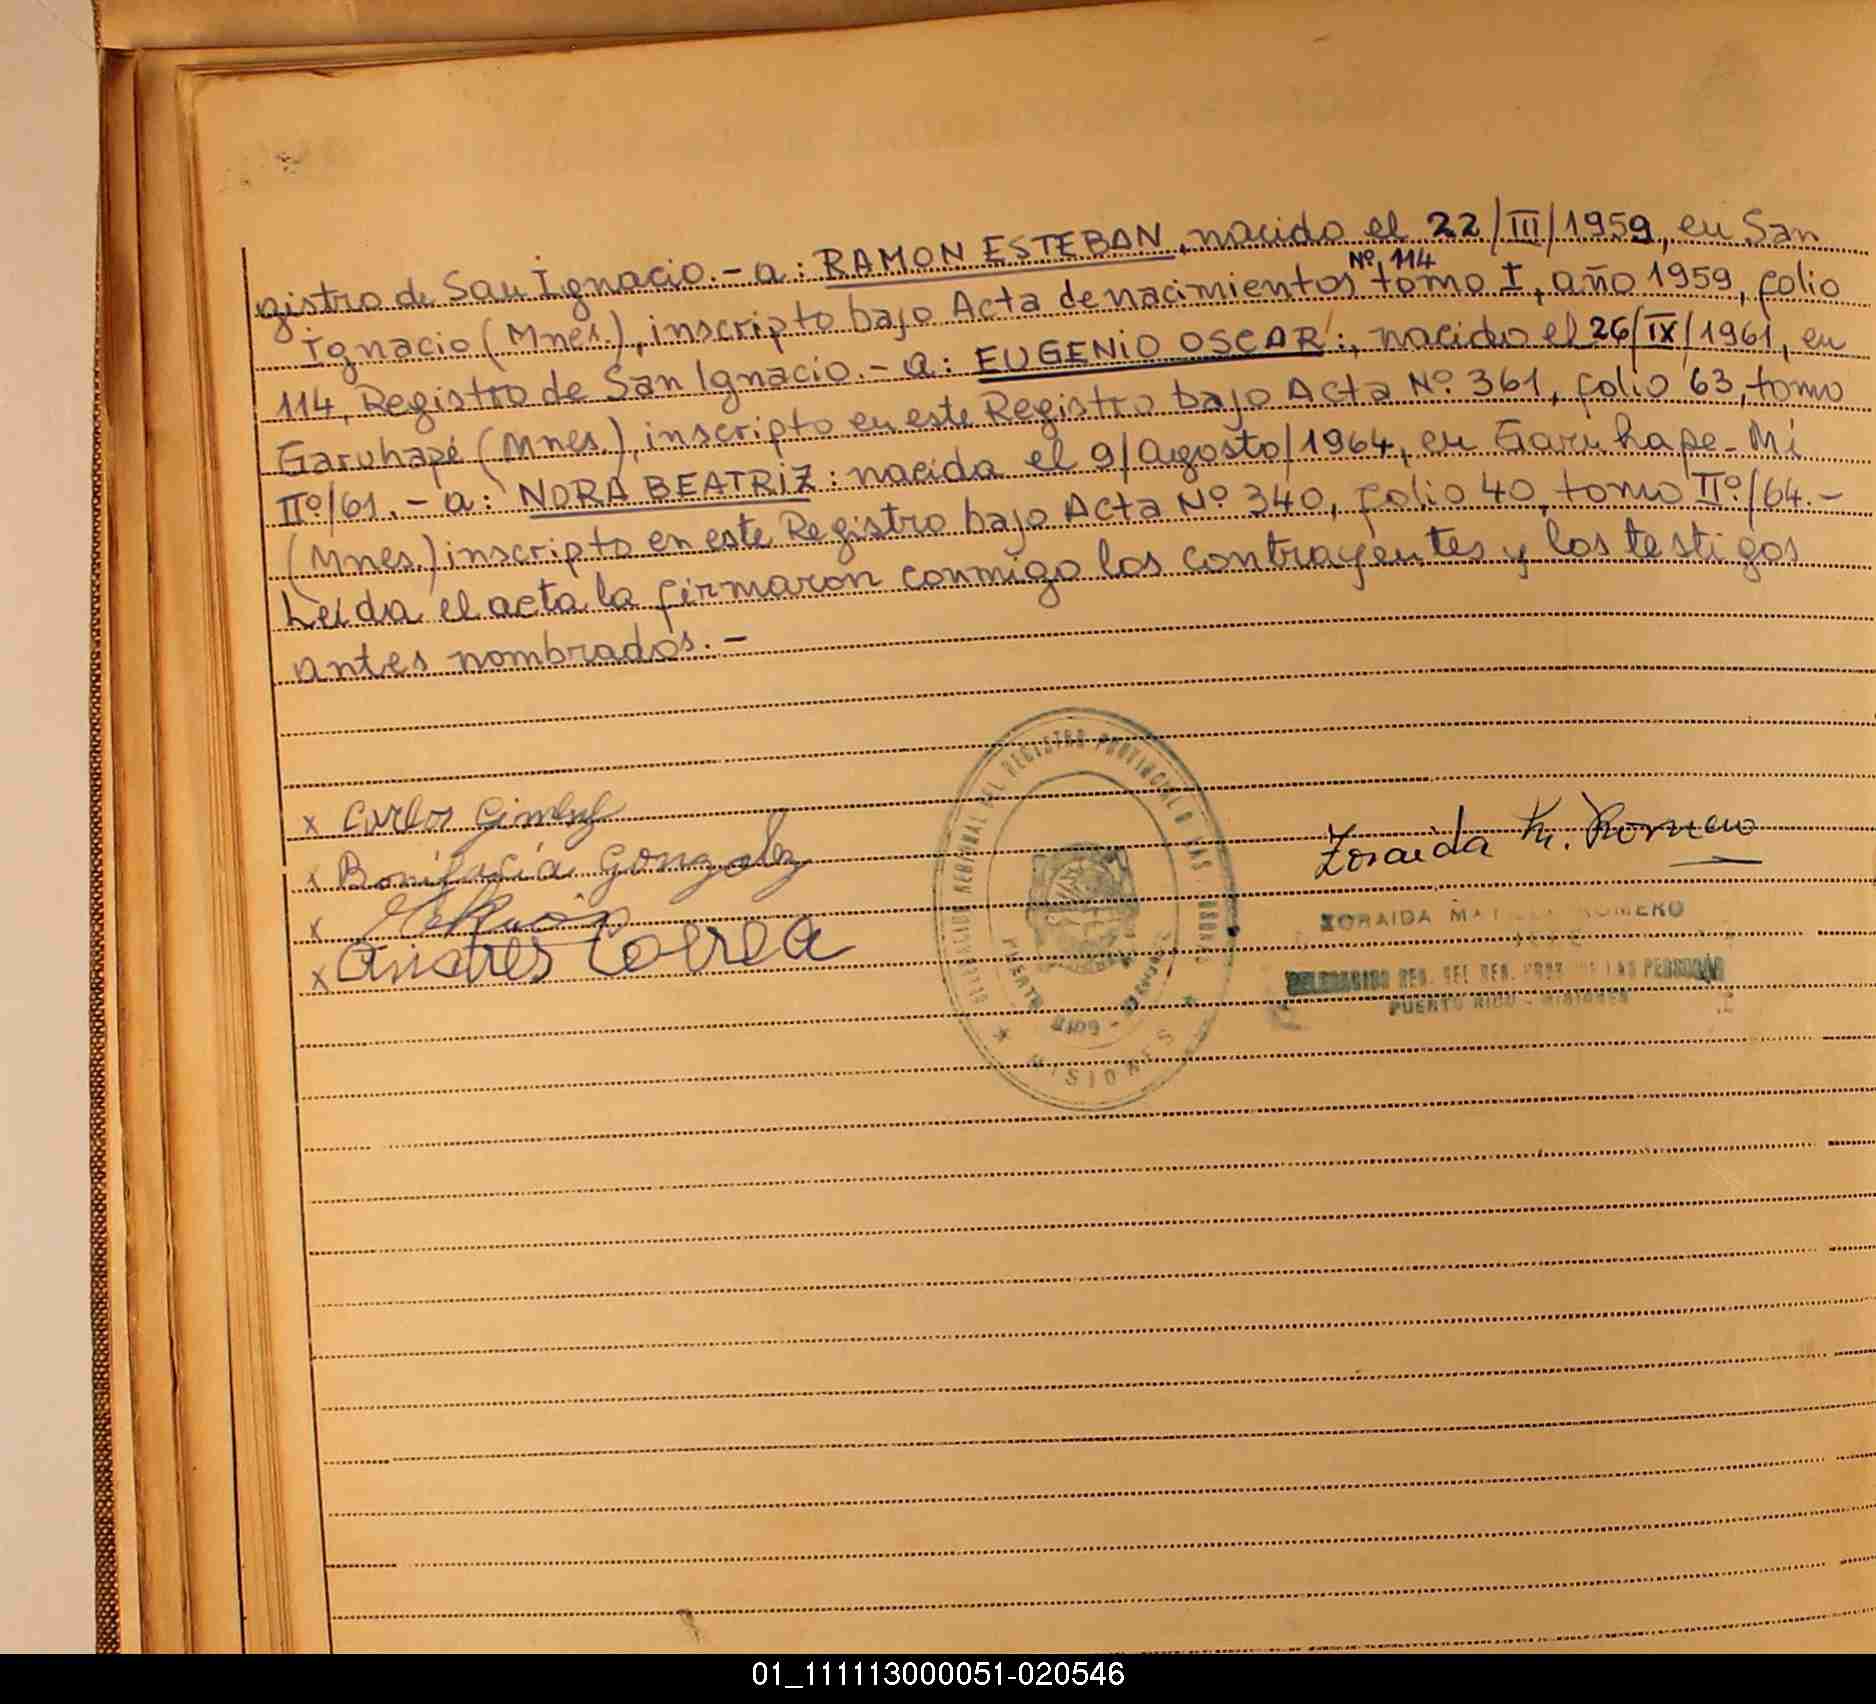 gistro de San Ignacio.- a: RAMON ESTEBAN, nacido el 22/III/1959, en San
Ignacio (Mnes.), inscripto bajo Acta de nacimientos Nº 114 tomo I, año 1959, folio
114, Registro de San Ignacio.- a: EUGENIO OSCAR:, nacido el 26/IX/1961, en
Garuhapé (Mnes.), inscripto en este Registro bajo Acta Nº 361, folio 63, tomo
IIº/61.- a: NORA BEATRIZ: nacida el 9/Agosto/1964, en Garuhape-Mí
(Mnes.) inscripto en este Registro bajo Acta Nº 340, folio 40, tomo IIº/64.-
Leída el acta la firmaron conmigo los contrayentes y los testigos
antes nombrados.-
x Carlos Gimenez
x Bonifacia Gonzalez
x
x Andres Correa
Zoraida M. Romero
ZORAIDA ROMERO
JEFE
DELEGACION REG. DEL REG. PROV. DE LAS PERSONAS
PUERTO RICO - MISIONES
DELEGACION REGIONAL DEL REGISTRO PROVINCIAL D LAS PERSONAS
PUERTO RICO -
MISIONES
01_111113000051-020546